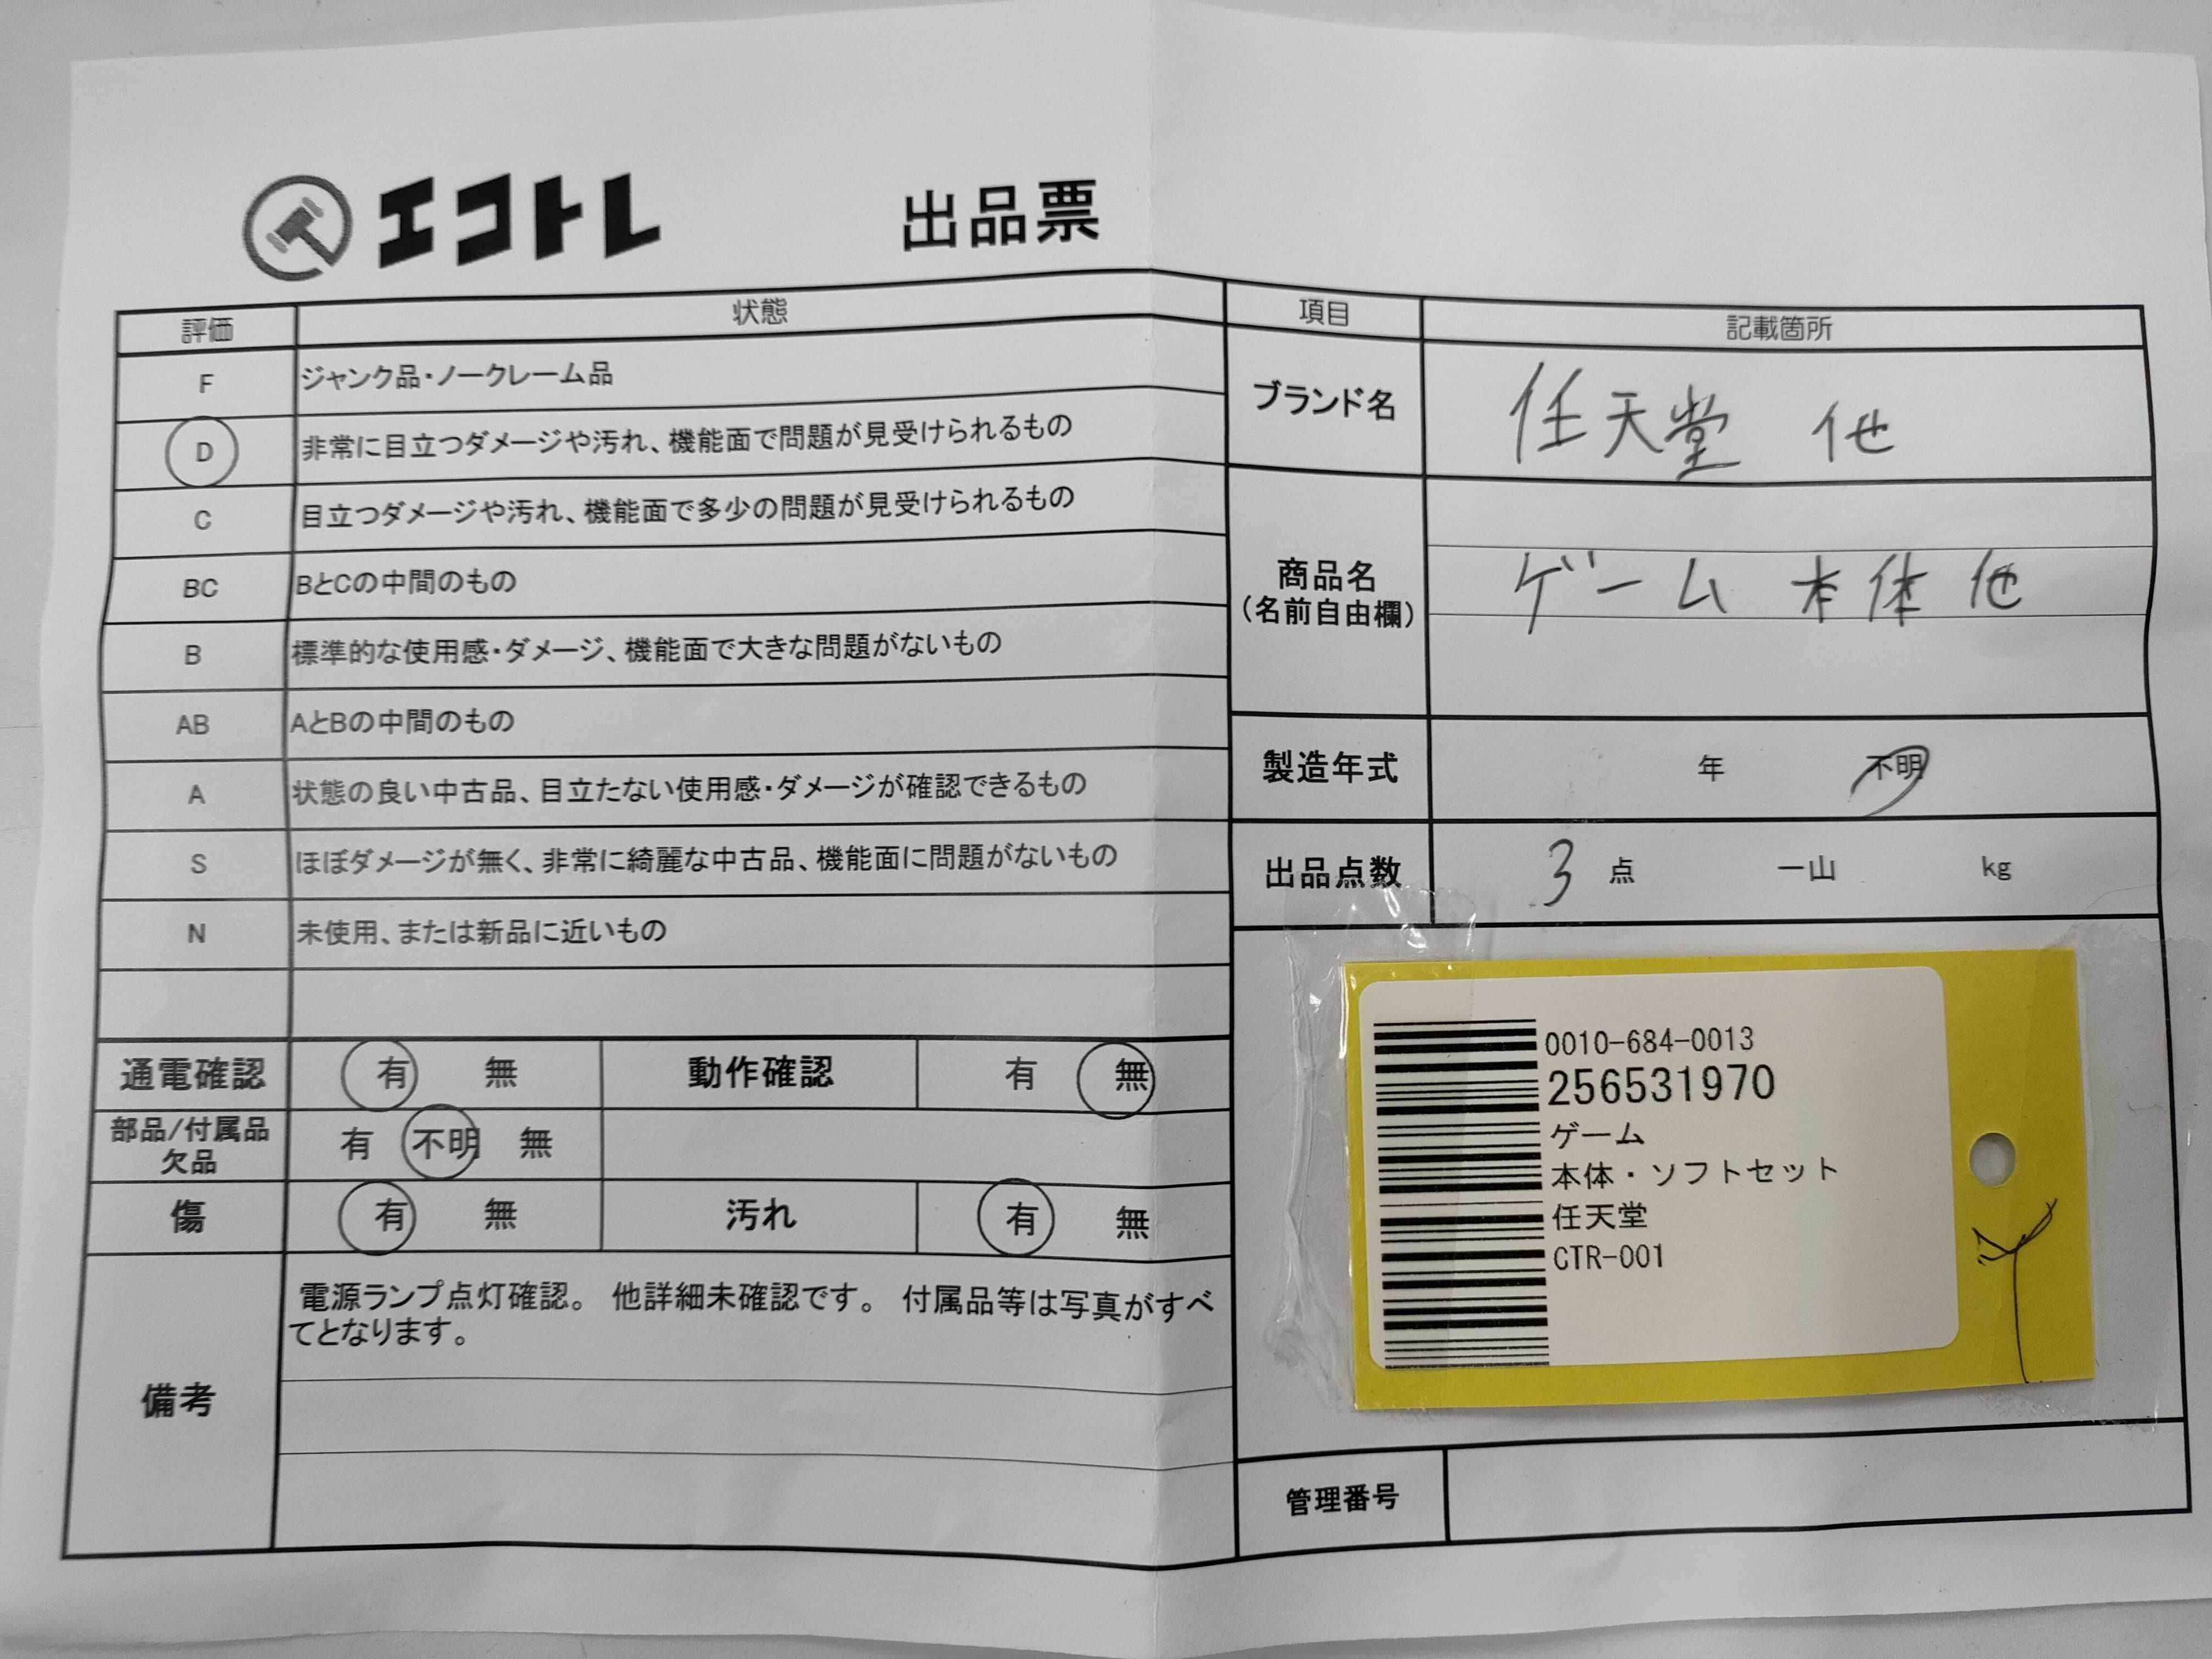 エコトレ 出品票
評価 状態
F ジャンク品・ノークレーム品
D 非常に目立つダメージや汚れ、機能面で問題が見受けられるもの
C 目立つダメージや汚れ、機能面で多少の問題が見受けられるもの
BC BとCの中間のもの
B 標準的な使用感・ダメージ、機能面で大きな問題がないもの
AB AとBの中間のもの
A 状態の良い中古品、目立たない使用感・ダメージが確認できるもの
S ほぼダメージが無く、非常に綺麗な中古品、機能面に問題がないもの
N 未使用、または新品に近いもの
通電確認 有 無 動作確認 有 無
部品/付属品
欠品 有 不明 無
傷 有 無 汚れ 有 無
備考
電源ランプ点灯確認。 他詳細未確認です。 付属品等は写真がすべ
てとなります。
項目 記載箇所
ブランド名 任天堂 他
商品名
(名前自由欄)
ゲーム 本体 他
製造年式 年 不明
出品点数 3 点 一山 kg
0010-684-0013
256531970
ゲーム
本体・ソフトセット
任天堂
CTR-001
管理番号